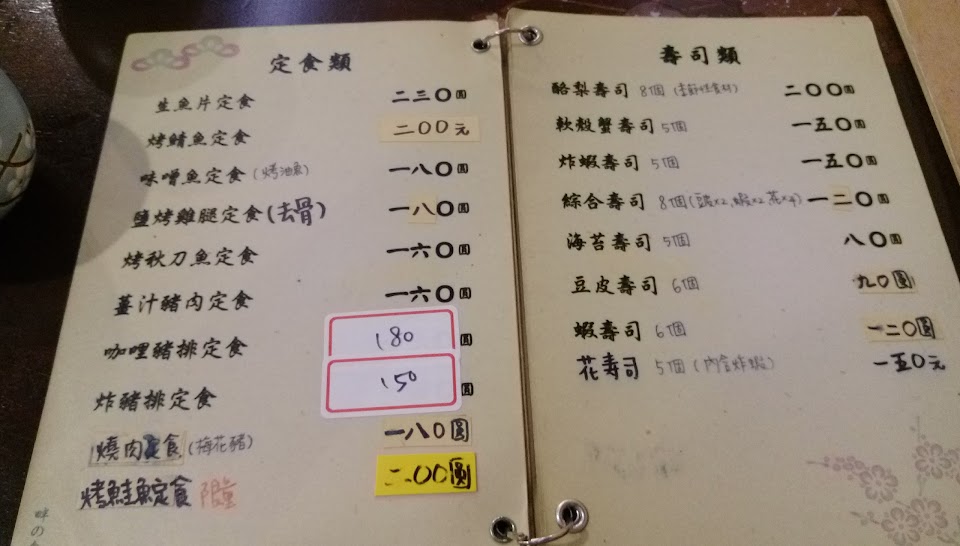 定食類
生魚片定食 二三〇圓
烤鯖魚定食 二〇〇元
味噌魚定食(烤油魚) 一八〇圓
鹽烤雞腿定食(去骨) 一八〇圓
烤秋刀魚定食 一六〇圓
薑汁豬肉定食 一六〇圓
咖哩豬排定食 180圓
炸豬排定食 150圓
燒肉定食(梅花豬) 一八〇圓
烤鮭魚定食 限量 二〇〇圓
壽司類
酪梨壽司 8個(季節性食材) 二〇〇圓
軟殼蟹壽司 5個 一五〇圓
炸蝦壽司 5個 一五〇圓
綜合壽司 8個(豆皮x2,蝦x2,花x4) 一二〇圓
海苔壽司 5個 八〇圓
豆皮壽司 6個 九〇圓
蝦壽司 6個 一二〇圓
花壽司 5個(內含炸蝦) 一五〇元